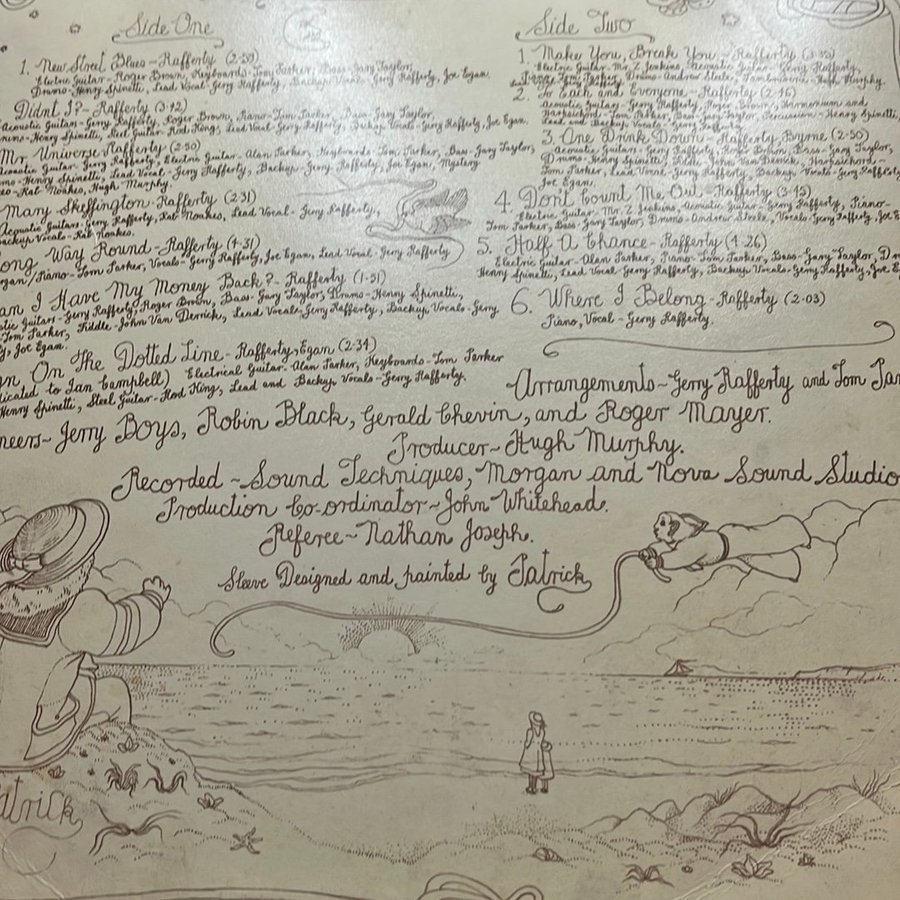 Side One
1. New Street Blues - Rafferty (2-59)
Electric Guitar - Roger Brown, Keyboards - Tom Parker, Bass - Gary Taylor,
Drums - Henry Spinetti, Lead Vocal - Gerry Rafferty, Backup Vocals - Gerry Rafferty, Joe Egan.
Didn't I? - Rafferty (3-42)
Acoustic Guitar - Gerry Rafferty, Roger Brown, Piano - Tom Parker, Bass - Gary Taylor,
Drums - Henry Spinetti, Steel Guitar - Rod King, Lead Vocal - Gerry Rafferty, Backup Vocals - Gerry Rafferty, Joe Egan.
Mr Universe Rafferty (2-50)
Acoustic Guitar - Gerry Rafferty, Electric Guitar - Alan Parker, Keyboards - Tom Parker, Bass - Gary Taylor,
Henry Spinetti, Lead Vocal - Gerry Rafferty, Backup - Gerry Rafferty, Joe Egan, Mystery
Rab Noakes, Hugh Murphy.
Mary Skeffington - Rafferty (2-31)
Acoustic Guitars - Gerry Rafferty, Rab Noakes, Lead Vocal - Gerry Rafferty,
Backup Vocals - Rab Noakes.
ong Way Round - Rafferty (4-31)
rgan/Piano - Tom Parker, Vocals - Gerry Rafferty, Joe Egan, Lead Vocal - Gerry Rafferty
an I Have My Money Back? - Rafferty (1-51)
stic Guitar - Gerry Rafferty, Roger Brown, Bass - Gary Taylor, Drums - Henry Spinetti,
Tom Parker, Fiddle - John Van Derrick, Lead Vocals - Gerry Rafferty, Backup Vocals - Gerry
y, Joe Egan.
gn On The Dotted Line - Rafferty, Egan (2-34)
dicated to Ian Campbell) Electrical Guitar - Alan Parker, Keyboards - Tom Parker
Henry Spinetti, Steel Guitar - Rod King, Lead and Backup Vocals - Gerry Rafferty.
Side Two
1. Make You, Break You - Rafferty
Electric Guitar - Mr. Z Jenkins, Acoustic Guitar - Gerry Rafferty,
Tom Parker, Drums - Andrew Steele, Tambourine - Hugh Murphy.
2. To Each and Everyone - Rafferty (2-46)
Acoustic Guitar - Gerry Rafferty, Roger Brown, Harmonium and
Harpsichord - Tom Parker, Bass - Gary Taylor, Percussion - Henry Spinetti,
Lead and Backup Vocals - Gerry Rafferty.
3 One Drink Down - Rafferty, Byrne (2-50)
Acoustic Guitars - Gerry Rafferty, Roger Brown, Bass - Gary Taylor,
Drums - Henry Spinetti, Fiddle - John Van Derrick, Harpsichord -
Tom Parker, Lead Vocal - Gerry Rafferty, Backup Vocals - Gerry Rafferty
Joe Egan.
4. Don't Count Me Out - Rafferty (3-45)
Electric Guitar - Mr. Z Jenkins, Acoustic Guitar - Gerry Rafferty, Piano -
Tom Parker, Bass - Gary Taylor, Drums - Andrew Steele, Vocals - Gerry Rafferty, Joe E
5. Half A Chance - Rafferty (4-26)
Electric Guitar - Alan Parker, Piano - Tom Parker, Bass - Gary Taylor, Dr
Henry Spinetti, Lead Vocal - Gerry Rafferty, Backup Vocals - Gerry Rafferty, Joe E
6. Where I Belong - Rafferty (2-03)
Piano, Vocal - Gerry Rafferty.
Arrangements ~ Gerry Rafferty and Tom Par
neers ~ Jerry Boys, Robin Black, Gerald Chevin, and Roger Mayer.
Producer ~ Hugh Murphy.
Recorded ~ Sound Techniques, Morgan and Nova Sound Studio
Production Co-ordinator ~ John Whitehead.
Referee ~ Nathan Joseph.
Sleeve Designed and painted by Patrick
atrick